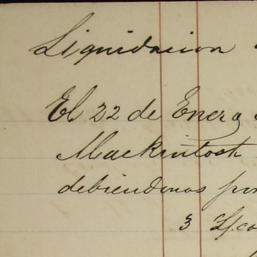 Liquidacion
El 22 de Enero
Mackintosh
debiendonos por
3